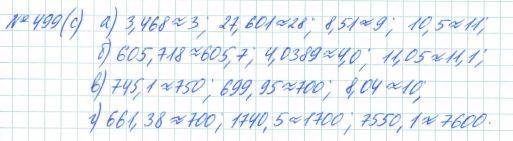 № 499(с) а) 3,468≈3; 27,601≈28; 8,51≈9; 10,5≈11;
б) 605,718≈605,7; 4,0389≈4,0; 11,05≈11,1;
в) 745,1≈750; 699,95≈700; 8,04≈10;
г) 661,38≈700; 1740,5≈1700; 7550,1≈7600.